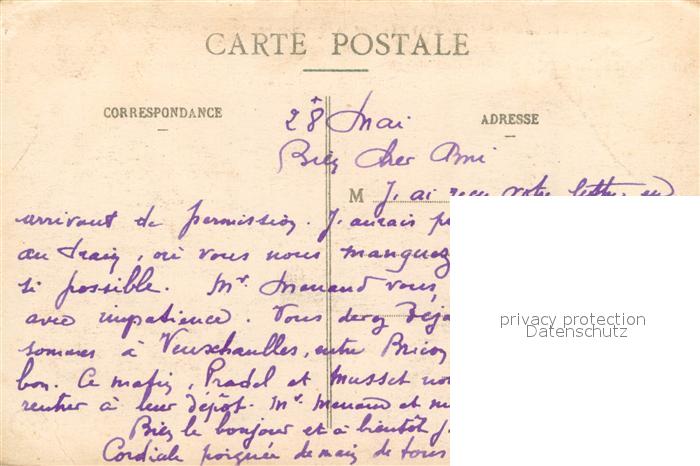 CARTE POSTALE
CORRESPONDANCE
ADRESSE
28 Mai
Bien Cher Ami
M
J'ai reçu votre lettre en
arrivant de permission. J'aurais
au train, où vous nous manquez
si possible. Mr. Menand vous
avec impatience. Vous devez déjà
sommes à Veuxhaulles, entre
bon. Ce matin, Pradel et Musset
rentrer à leur dépôt. Mr. Menand et
Bien le bonjour et à bientôt
Cordiale poignée de main de tous
privacy protection
Datenschutz